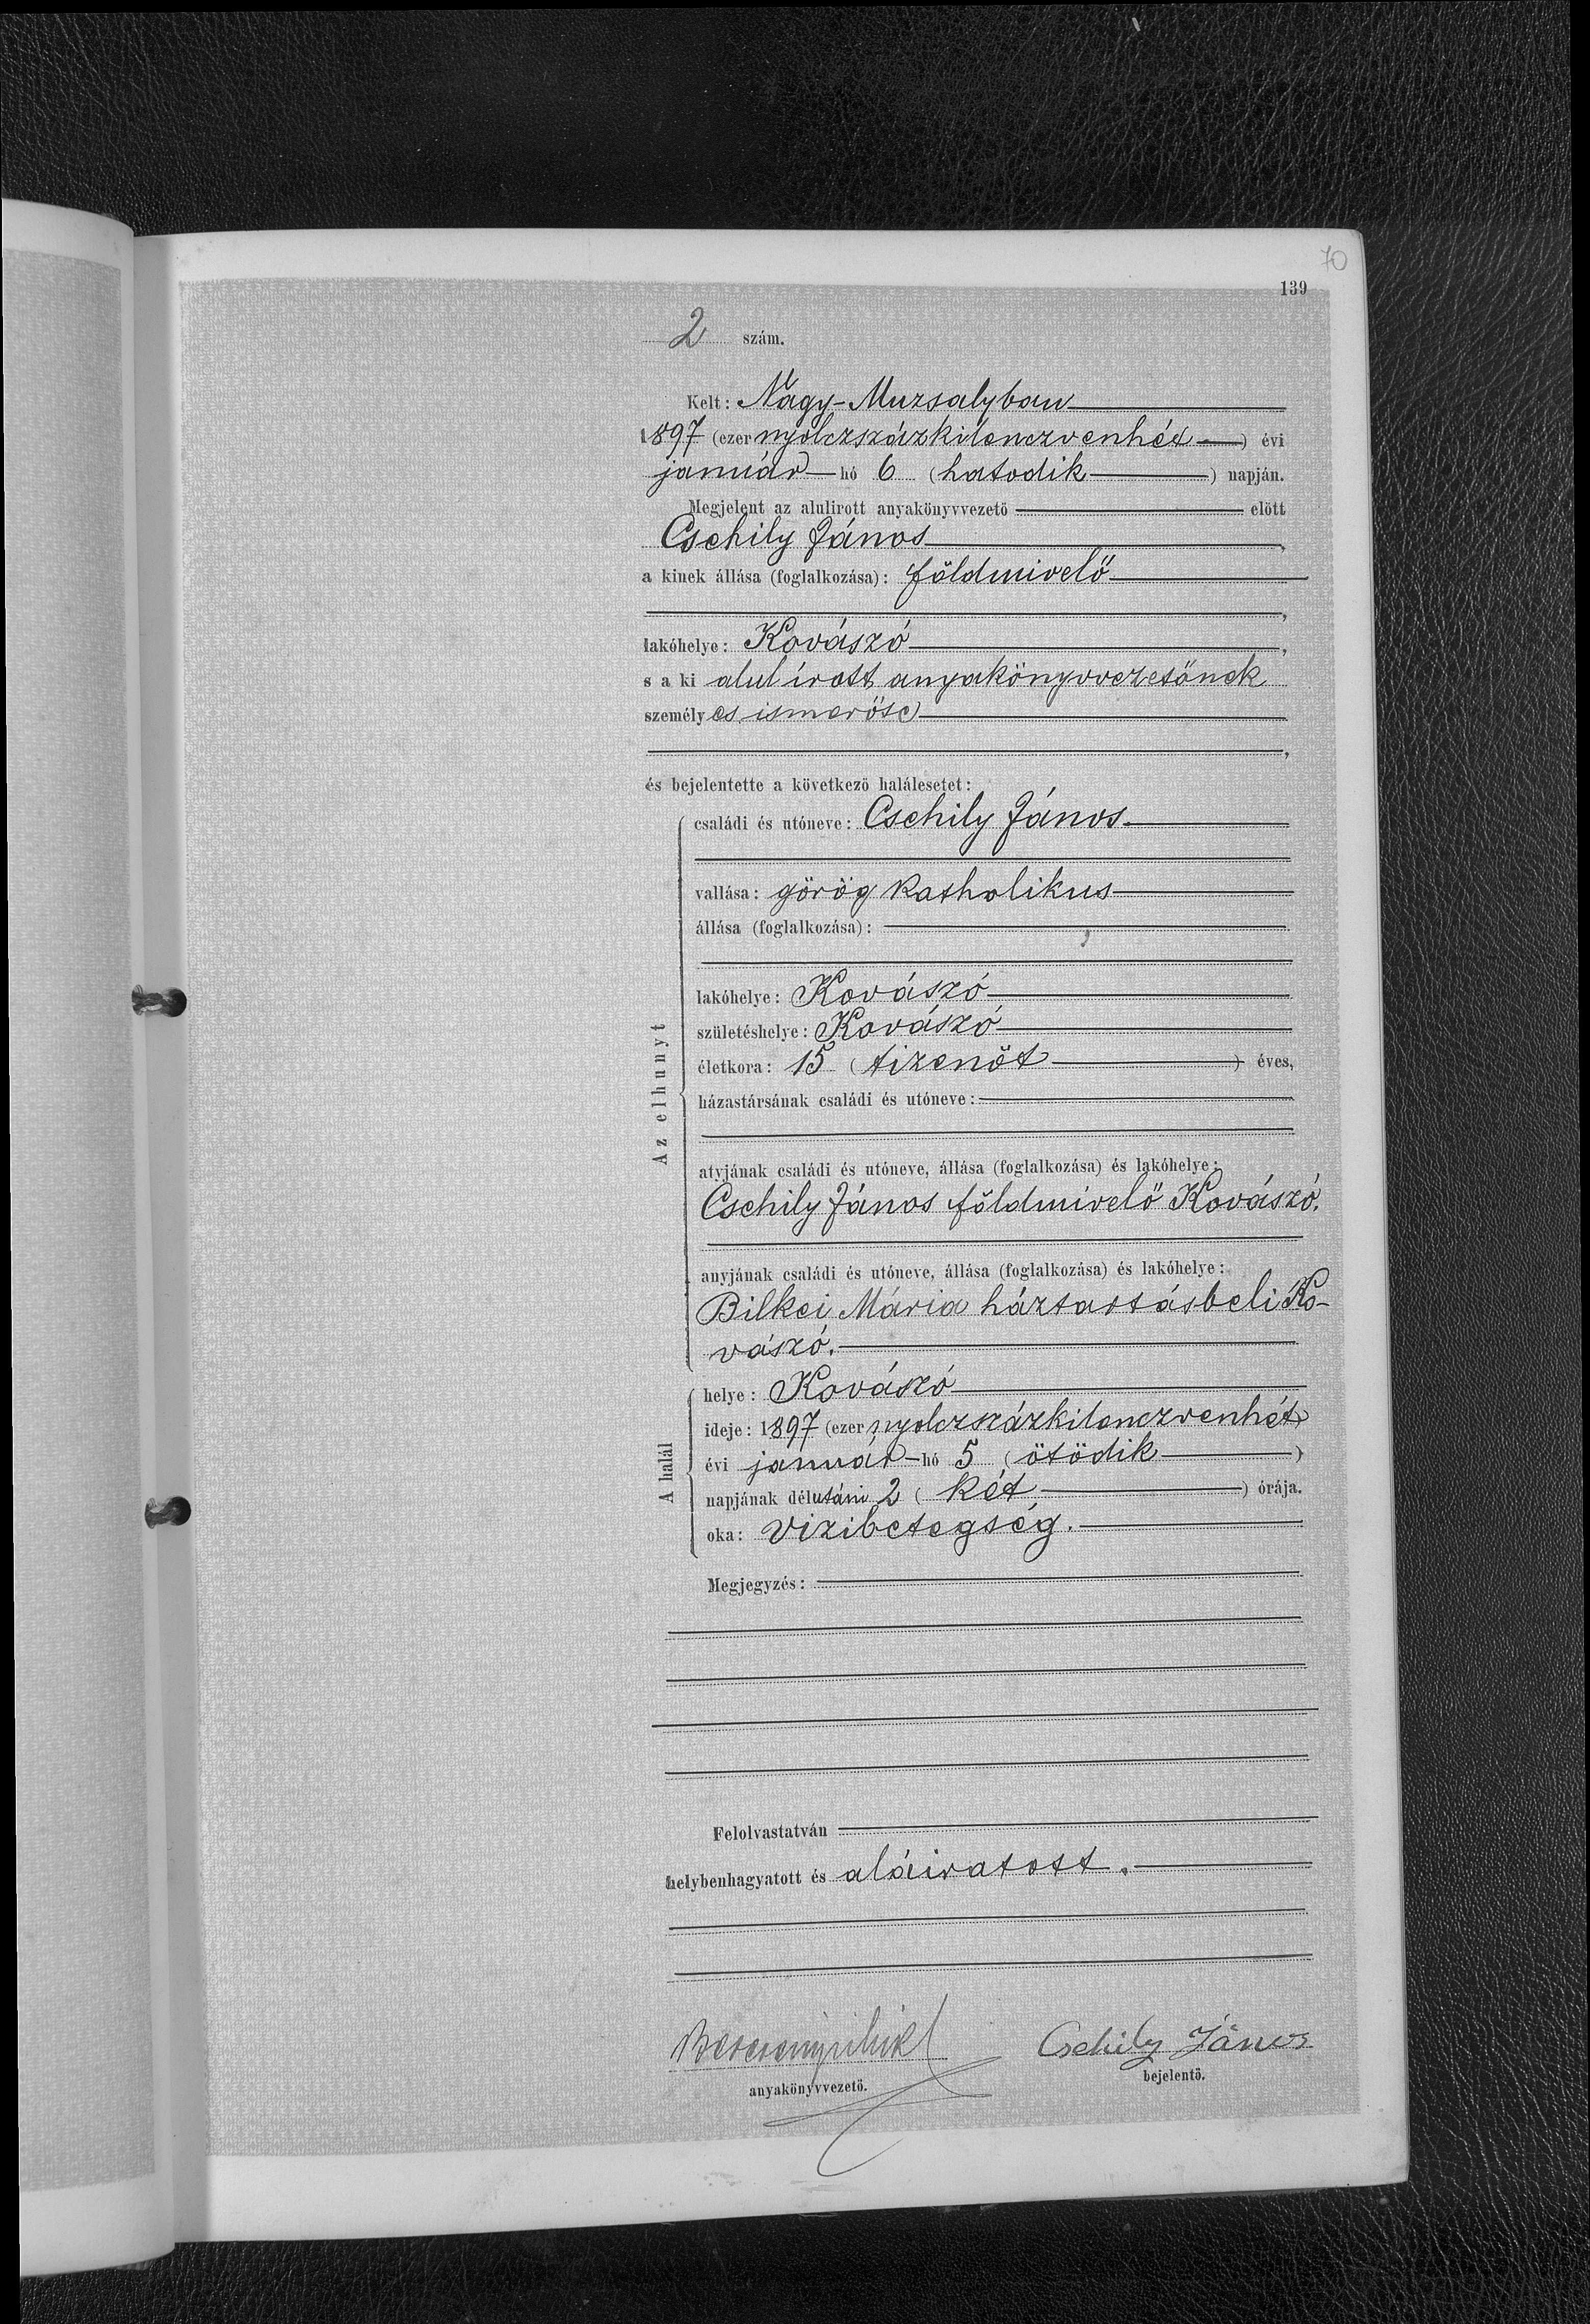 70
139
2 szám.
Kelt: Nagy-Muzsalyban
1897 (ezer nyolczszázkilenczvenhét) évi
január hó 6 (hatodik) napján.
Megjelent az alulirott anyakönyvvezető előtt
Csehily János,
a kinek állása (foglalkozása): földmivelő
,
lakóhelye: Kovászó,
s a ki alulírott anyakönyvvezetőnek
személyes ismerőse
,
és bejelentette a következő halálesetet:
Az elhunyt
családi és utóneve: Csehily János
vallása: görög katholikus
állása (foglalkozása):
lakóhelye: Kovászó
születéshelye: Kovászó
életkora: 15 (tizenöt) éves,
házastársának családi és utóneve:
atyjának családi és utóneve, állása (foglalkozása) és lakóhelye:
Csehily János földmivelő Kovászó.
anyjának családi és utóneve, állása (foglalkozása) és lakóhelye:
Bilkei Mária háztartásbeli Ko-
vászó.
A halál
helye: Kovászó
ideje: 1897 (ezer nyolczszázkilenczvenhét)
évi január hó 5 (ötödik)
napjának délutáni 2 (két) órája.
oka: vizibetegség.
Megjegyzés:
Felolvastatván
helybenhagyatott és aláiratott.
Csehily János
anyakönyvvezető.
bejelentő.